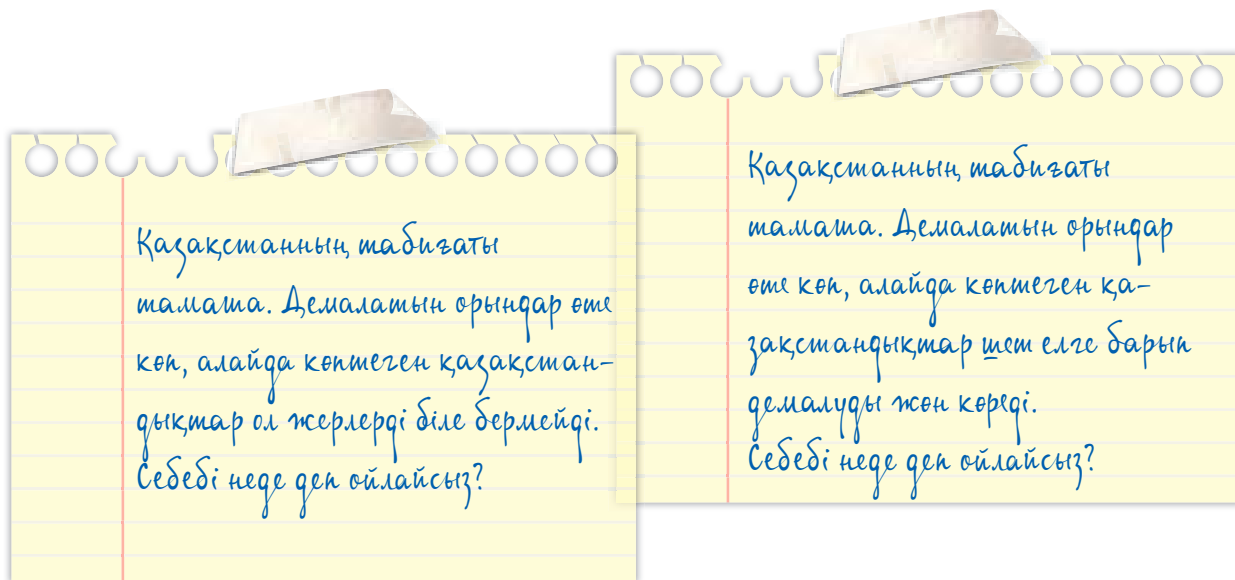 Қазақстанның табиғаты
тамаша. Демалатын орындар өте
көп, алайда көптеген қазақстан-
дықтар ол жерлерді біле бермейді.
Себебі неде деп ойлайсыз?
Қазақстанның табиғаты
тамаша. Демалатын орындар
өте көп, алайда көптеген қа-
зақстандықтар шет елге барып
демалуды жөн көреді.
Себебі неде деп ойлайсыз?